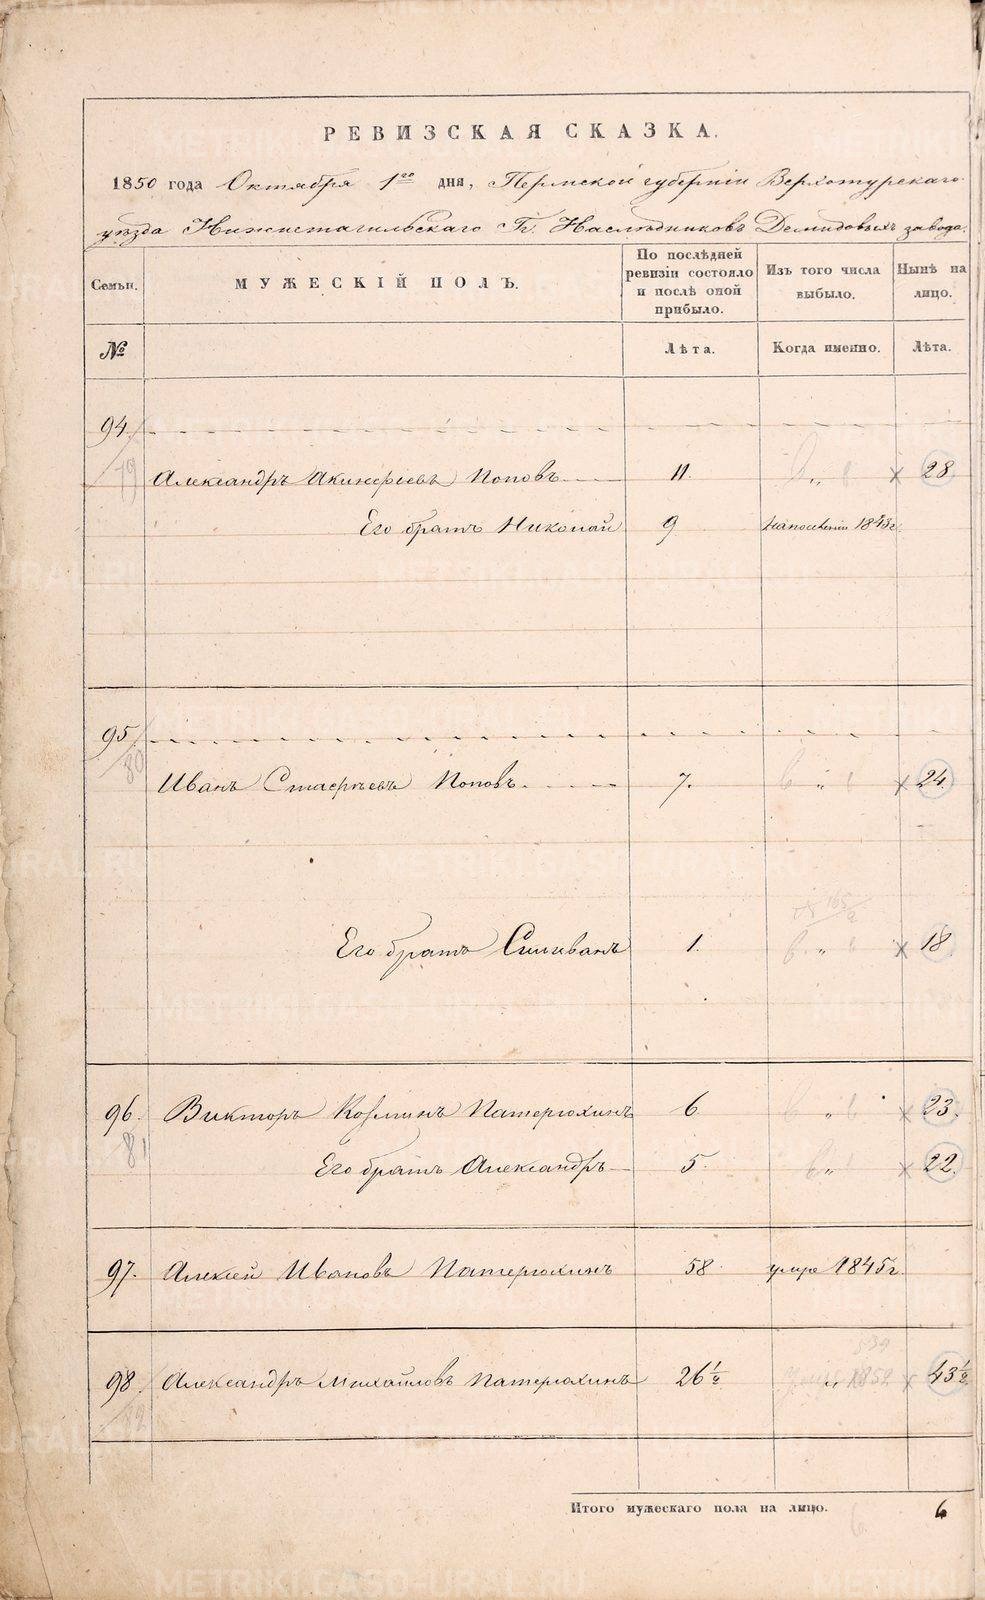 РЕВИЗСКАЯ СКАЗКА.
1850 года Октября 1го дня, Пермской губернiи Верхотурскаго
уѣзда Нижнетагильскаго Гг. Наслѣдниковъ Демидовыхъ завода.
Семьи. МУЖЕСКIЙ ПОЛЪ. По послѣдней ревизiи состояло и послѣ оной прибыло. Изъ того числа выбыло. Нынѣ на лицо.
№ Лѣта. Когда именно. Лѣта.
94.
79 Александръ Акинфiевъ Поповъ 11. „ × 28
Его братъ Николай 9 1843г.
95
80 Иванъ Поповъ. 7. „ × 24.
165/2
Его братъ Силиванъ 1. „ × 18.
96. Викторъ Козминъ Патерюхинъ 6 „ × 23.
81 Его братъ Александръ 5. „ × 22.
97. Алексей Ивановъ Патерюхинъ 58. умре 1845г.
98. Александръ Михайловъ Патерюхинъ 26½ умре 1852 × 43½
82
Итого мужескаго пола на лицо. 6
6.
METRIKI.GASO-URAL.RU